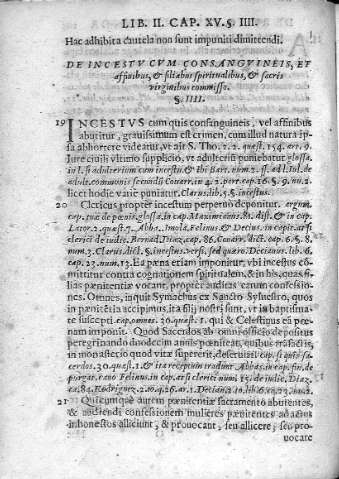 LIB. II. CAP. XV. §. IIII.
Hac adhibita cautela non sunt impuniti dimittendi.
DE INCESTU CUM CONSANGUINEIS, ET
affinibus, & filiabus spiritualibus, & sacris
virginibus commisso.
§. IIII.
19 INCESTUS cum quis consanguineis, vel affinibus
abutitur, gravissimum est crimen, cum illud natura ip-
sa abhorrere videatur, ut ait S. Tho. 2. 2. quæst. 154. ar. 9.
Jure civili ultimo supplicio, ut adulterium puniebatur glossa
in l. si adulterium cum incestu, & ibi Bart. num. 2. ff. ad l. Iul. de
adult. communis secundum Covarr. in 4. 2. par. cap. 6. §. 9. nu. 2.
licet hodie varie puniatur. Clarus lib. 5. §. incestus.
20 Clericus propter incestum perpetuo deponitur. argum.
cap. tuæ de pœnis. glossa in cap. Maximianus 81. dist. & in cap.
Lator. 2. quæst. 7. Abba. Imola, Felinus & Decius. in capit. at si
clerici de iudic. Bernard. Diaz. cap. 86. Covarr. dict. cap. 6. §. 8.
num. 3. Clarus. dict. §. incestus. versi. sed quæro. Decianus. lib. 6.
cap. 23. num. 13. Ea pæna etiam imponitur, ubi incestus co
mittitur contra cognationem spiritualem, & in his, quas fi-
lias pœnitentiæ vocant, propter auditas earum confessio-
nes. Omnes, inquit Symachus ex Sancto Sylvestro, quos
in pœnitẽtia accipimus, ita filij nostri sunt, ut in baptisma-
te suscepti. cap. omnes. 30. quæst. 1. qui & Celestinus eũ pœ-
nam imponit. Quod Sacerdos ab omni officio depositus
peregrinando duodecim annis pœniteat, quibus trãsactis,
in monasterio quod vitæ supererit, deserviat. cap. si quis sa-
cerdos. 30. quæst. 1. & ita receptum tradunt Abbas in cap. fin. de
purgat. cano. Felinus in cap. at si clerici num. 15. de iudic. Diaz.
ca. 84. Rodriguez
21 Quicumque autem pœnitentiæ sacramento abutentes,
& audiendi confessionem mulieres pœnitentes ad actus
inhonestos alliciunt, & provocant, seu allicere, seu pro-
vocare